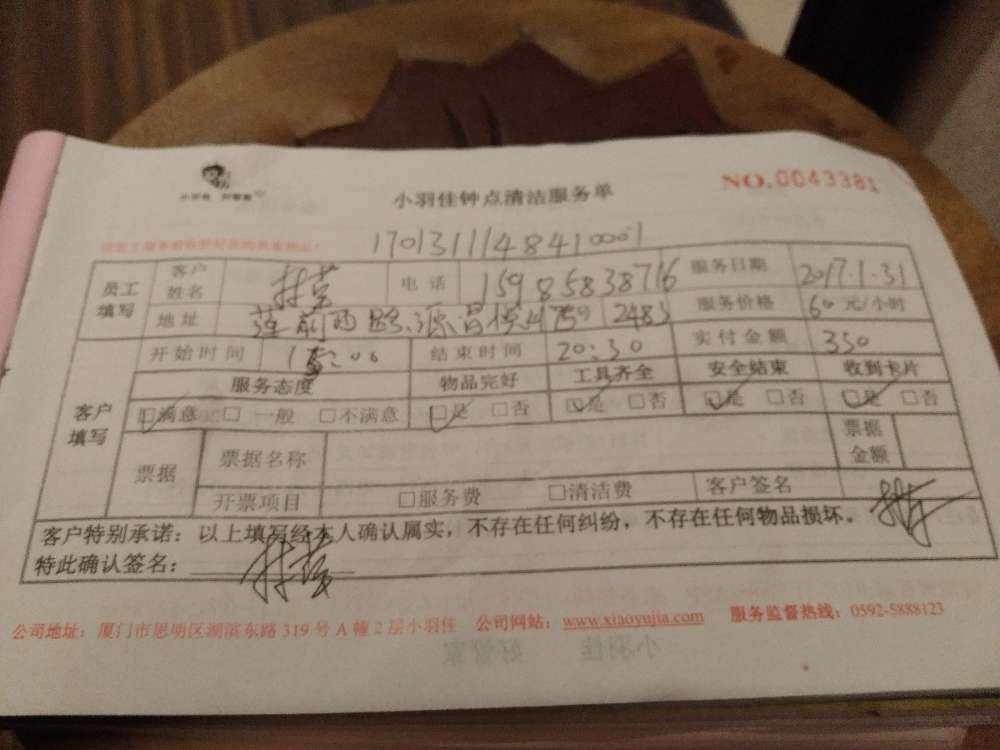 小羽佳 好管家
小羽佳钟点清洁服务单
NO.0043381
1701311148410001
员工填写 客户姓名 林莹 电话 15985838716 服务日期 2017.1.31
地址 莲前西路源昌 2483 服务价格 60元/小时
客户填写 开始时间 15:00 结束时间 20:30 实付金额 330
服务态度 物品完好 工具齐全 安全结束 收到卡片
满意 一般 不满意 是 否 是 否 是 否 是 否
票据 票据名称 票据金额
开票项目 服务费 清洁费 客户签名
客户特别承诺：以上填写经本人确认属实，不存在任何纠纷，不存在任何物品损坏。
特此确认签名：
公司地址：厦门市思明区湖滨东路 319 号 A 幢 2 层小羽佳 公司网站：www.xiaoyujia.com 服务监督热线：0592-5888123